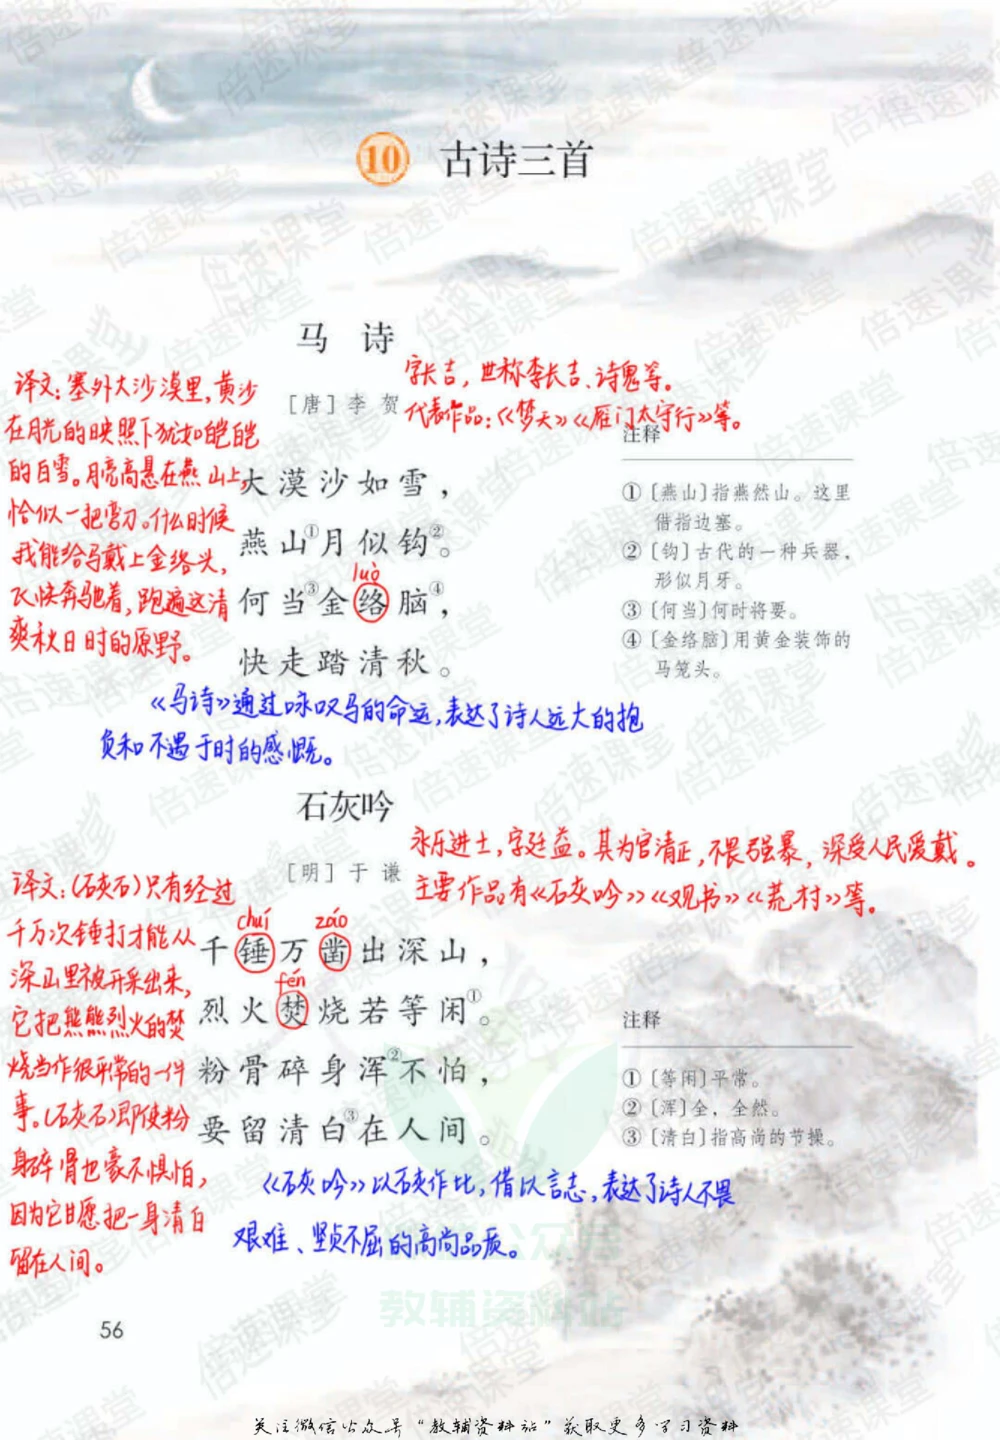 10 古诗三首
马 诗
[唐] 李 贺
字长吉，世称李长吉、诗鬼等。
代表作品：《梦天》《雁门太守行》等。
译文：塞外大沙漠里，黄沙
在月光的映照下犹如皑皑
的白雪。月亮高悬在燕山上，
恰似一把弯刀。什么时候
我能给马戴上金络头，
飞快奔驰着，跑遍这清
爽秋日时的原野。
大漠沙如雪，
燕山①月似钩②。
luò
何当③金络脑④，
快走踏清秋。
注释
①〔燕山〕指燕然山。这里
借指边塞。
②〔钩〕古代的一种兵器，
形似月牙。
③〔何当〕何时将要。
④〔金络脑〕用黄金装饰的
马笼头。
《马诗》通过咏叹马的命运，表达了诗人远大的抱
负和不遇于时的感慨。
石灰吟
[明] 于 谦
永乐进士，字廷益。其为官清正，不畏强暴，深受人民爱戴。
主要作品有《石灰吟》《观书》《荒村》等。
译文：(石灰石)只有经过
千万次锤打才能从
深山里被开采出来，
它把熊熊烈火的焚
烧当作很平常的一件
事。(石灰石)即使粉
身碎骨也豪不惧怕，
因为它甘愿把一身清白
留在人间。
chuí záo
千锤万凿出深山，
fén
烈火焚烧若等闲①。
粉骨碎身浑②不怕，
要留清白③在人间。
注释
①〔等闲〕平常。
②〔浑〕全，全然。
③〔清白〕指高尚的节操。
《石灰吟》以石灰作比，借以言志，表达了诗人不畏
艰难、坚贞不屈的高尚品质。
教辅资料站
56
关注微信公众号“教辅资料站”获取更多学习资料
倍速课堂